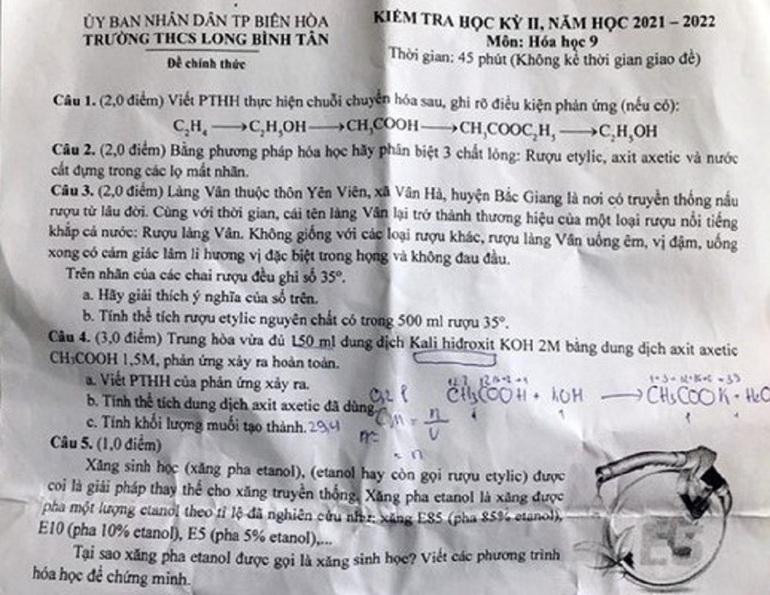 ỦY BAN NHÂN DÂN TP BIÊN HÒA
TRƯỜNG THCS LONG BÌNH TÂN
Đề chính thức
KIỂM TRA HỌC KỲ II, NĂM HỌC 2021 – 2022
Môn: Hóa học 9
Thời gian: 45 phút (Không kể thời gian giao đề)
Câu 1. (2,0 điểm) Viết PTHH thực hiện chuỗi chuyển hóa sau, ghi rõ điều kiện phản ứng (nếu có):
C₂H₄ ⟶ C₂H₅OH ⟶ CH₃COOH ⟶ CH₃COOC₂H₅ ⟶ C₂H₅OH
Câu 2. (2,0 điểm) Bằng phương pháp hóa học hãy phân biệt 3 chất lỏng: Rượu etylic, axit axetic và nước
cất đựng trong các lọ mất nhãn.
Câu 3. (2,0 điểm) Làng Vân thuộc thôn Yên Viên, xã Vân Hà, huyện Bắc Giang là nơi có truyền thống nấu
rượu từ lâu đời. Cùng với thời gian, cái tên làng Vân lại trở thành thương hiệu của một loại rượu nổi tiếng
khắp cả nước: Rượu làng Vân. Không giống với các loại rượu khác, rượu làng Vân uống êm, vị đậm, uống
xong có cảm giác lâm li hương vị đặc biệt trong họng và không đau đầu.
Trên nhãn của các chai rượu đều ghi số 35°.
a. Hãy giải thích ý nghĩa của số trên.
b. Tính thể tích rượu etylic nguyên chất có trong 500 ml rượu 35°.
Câu 4. (3,0 điểm) Trung hòa vừa đủ 150 ml dung dịch Kali hiđroxit KOH 2M bằng dung dịch axit axetic
CH₃COOH 1,5M, phản ứng xảy ra hoàn toàn.
a. Viết PTHH của phản ứng xảy ra.
b. Tính thể tích dung dịch axit axetic đã dùng. 0,2 l
c. Tính khối lượng muối tạo thành. 29,4
CH₃COOH + KOH ⟶ CH₃COOK + H₂O
CM = n/V
Câu 5. (1,0 điểm)
Xăng sinh học (xăng pha etanol), (etanol hay còn gọi rượu etylic) được
coi là giải pháp thay thế cho xăng truyền thống. Xăng pha etanol là xăng được
pha một lượng etanol theo tỉ lệ đã nghiên cứu như: xăng E85 (pha 85% etanol),
E10 (pha 10% etanol), E5 (pha 5% etanol),...
Tại sao xăng pha etanol được gọi là xăng sinh học? Viết các phương trình
hóa học để chứng minh.